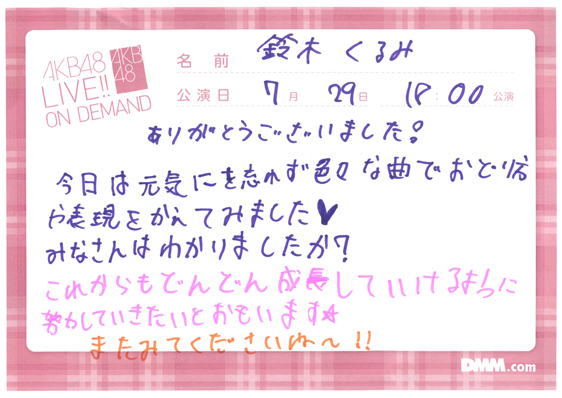 AKB48
LIVE!!
ON DEMAND
AKB
48
名前 鈴木 くるみ
公演日 7月 29日 18:00 公演
ありがとうございました!
今日は元気にを忘れず色々な曲でおどり方
や表現をかえてみました♥
みなさんはわかりましたか?
これからもどんどん成長していけるように
努力していきたいとおもいます☆
またみてくださいね〜!!
DMM.com